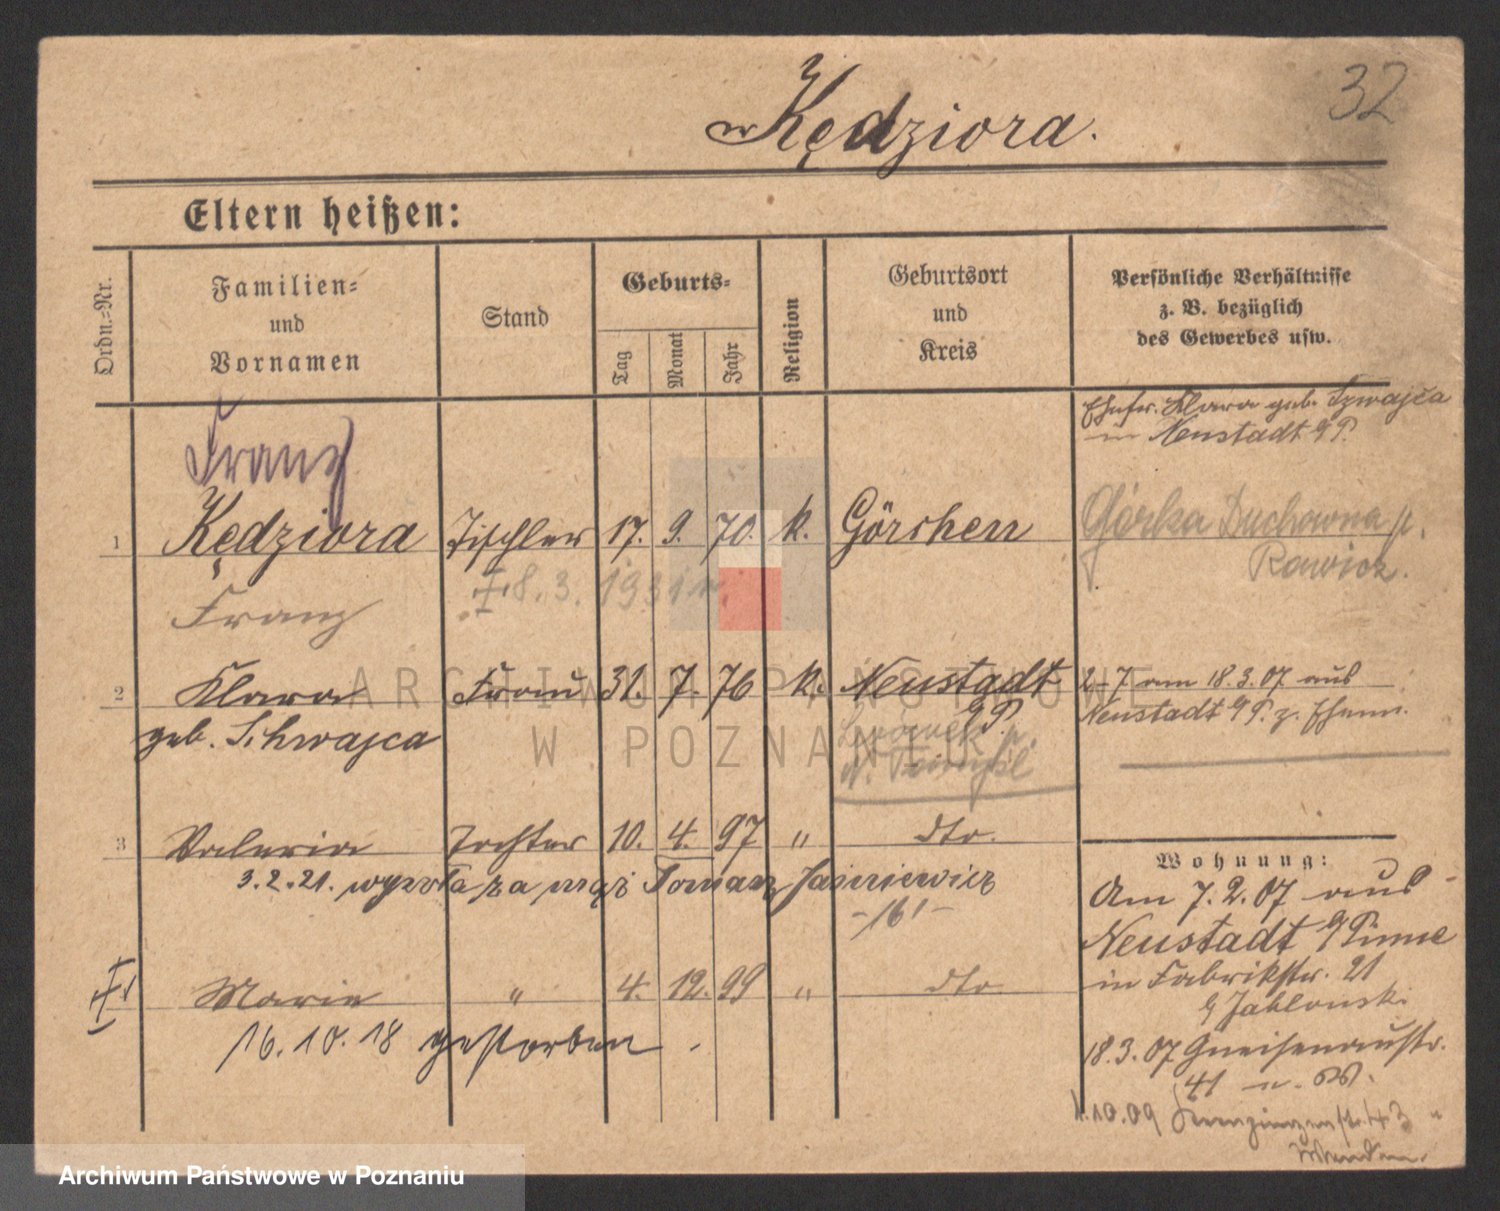 32
Kędziora.
Eltern heißen:
Ordn.-Nr.
Familien-
und
Vornamen
Stand
Geburts-
Tag
Monat
Jahr
Religion
Geburtsort
und
Kreis
Persönliche Verhältnisse
z. B. bezüglich
des Gewerbes usw.
Ehefr. Klara geb. Szwajca
in Neustadt b/P.
Franz
1 Kędziora Tischler 17. 9. 70. k. Görchen Górka Duchowna p.
Rawicz.
Franz
8. 3. 1931 r.
2 Klara Frau 31. 7. 76 k. Neustadt b/P. 2-7 am 18.3.07 aus
geb. Schwajca
Neustadt b/P. z. Ehem.
Lwówek p.
N. Tomyśl
3 Valeria Tochter 10. 4. 97 " dto.
3.2.21. wyszła za mąż Tomasz Jasiniewicz
-16!-
Marie " 4. 12. 99 " dto
16.10.18 gestorben.
Wohnung:
Am 7.2.07 aus
Neustadt b/Pinne
in Fabrikstr. 21
b/ Jablonski
18.3.07 Gneisenaustr.
41
1.10.09 43
ARCHIWUM PAŃSTWOWE
W POZNANIU
Archiwum Państwowe w Poznaniu